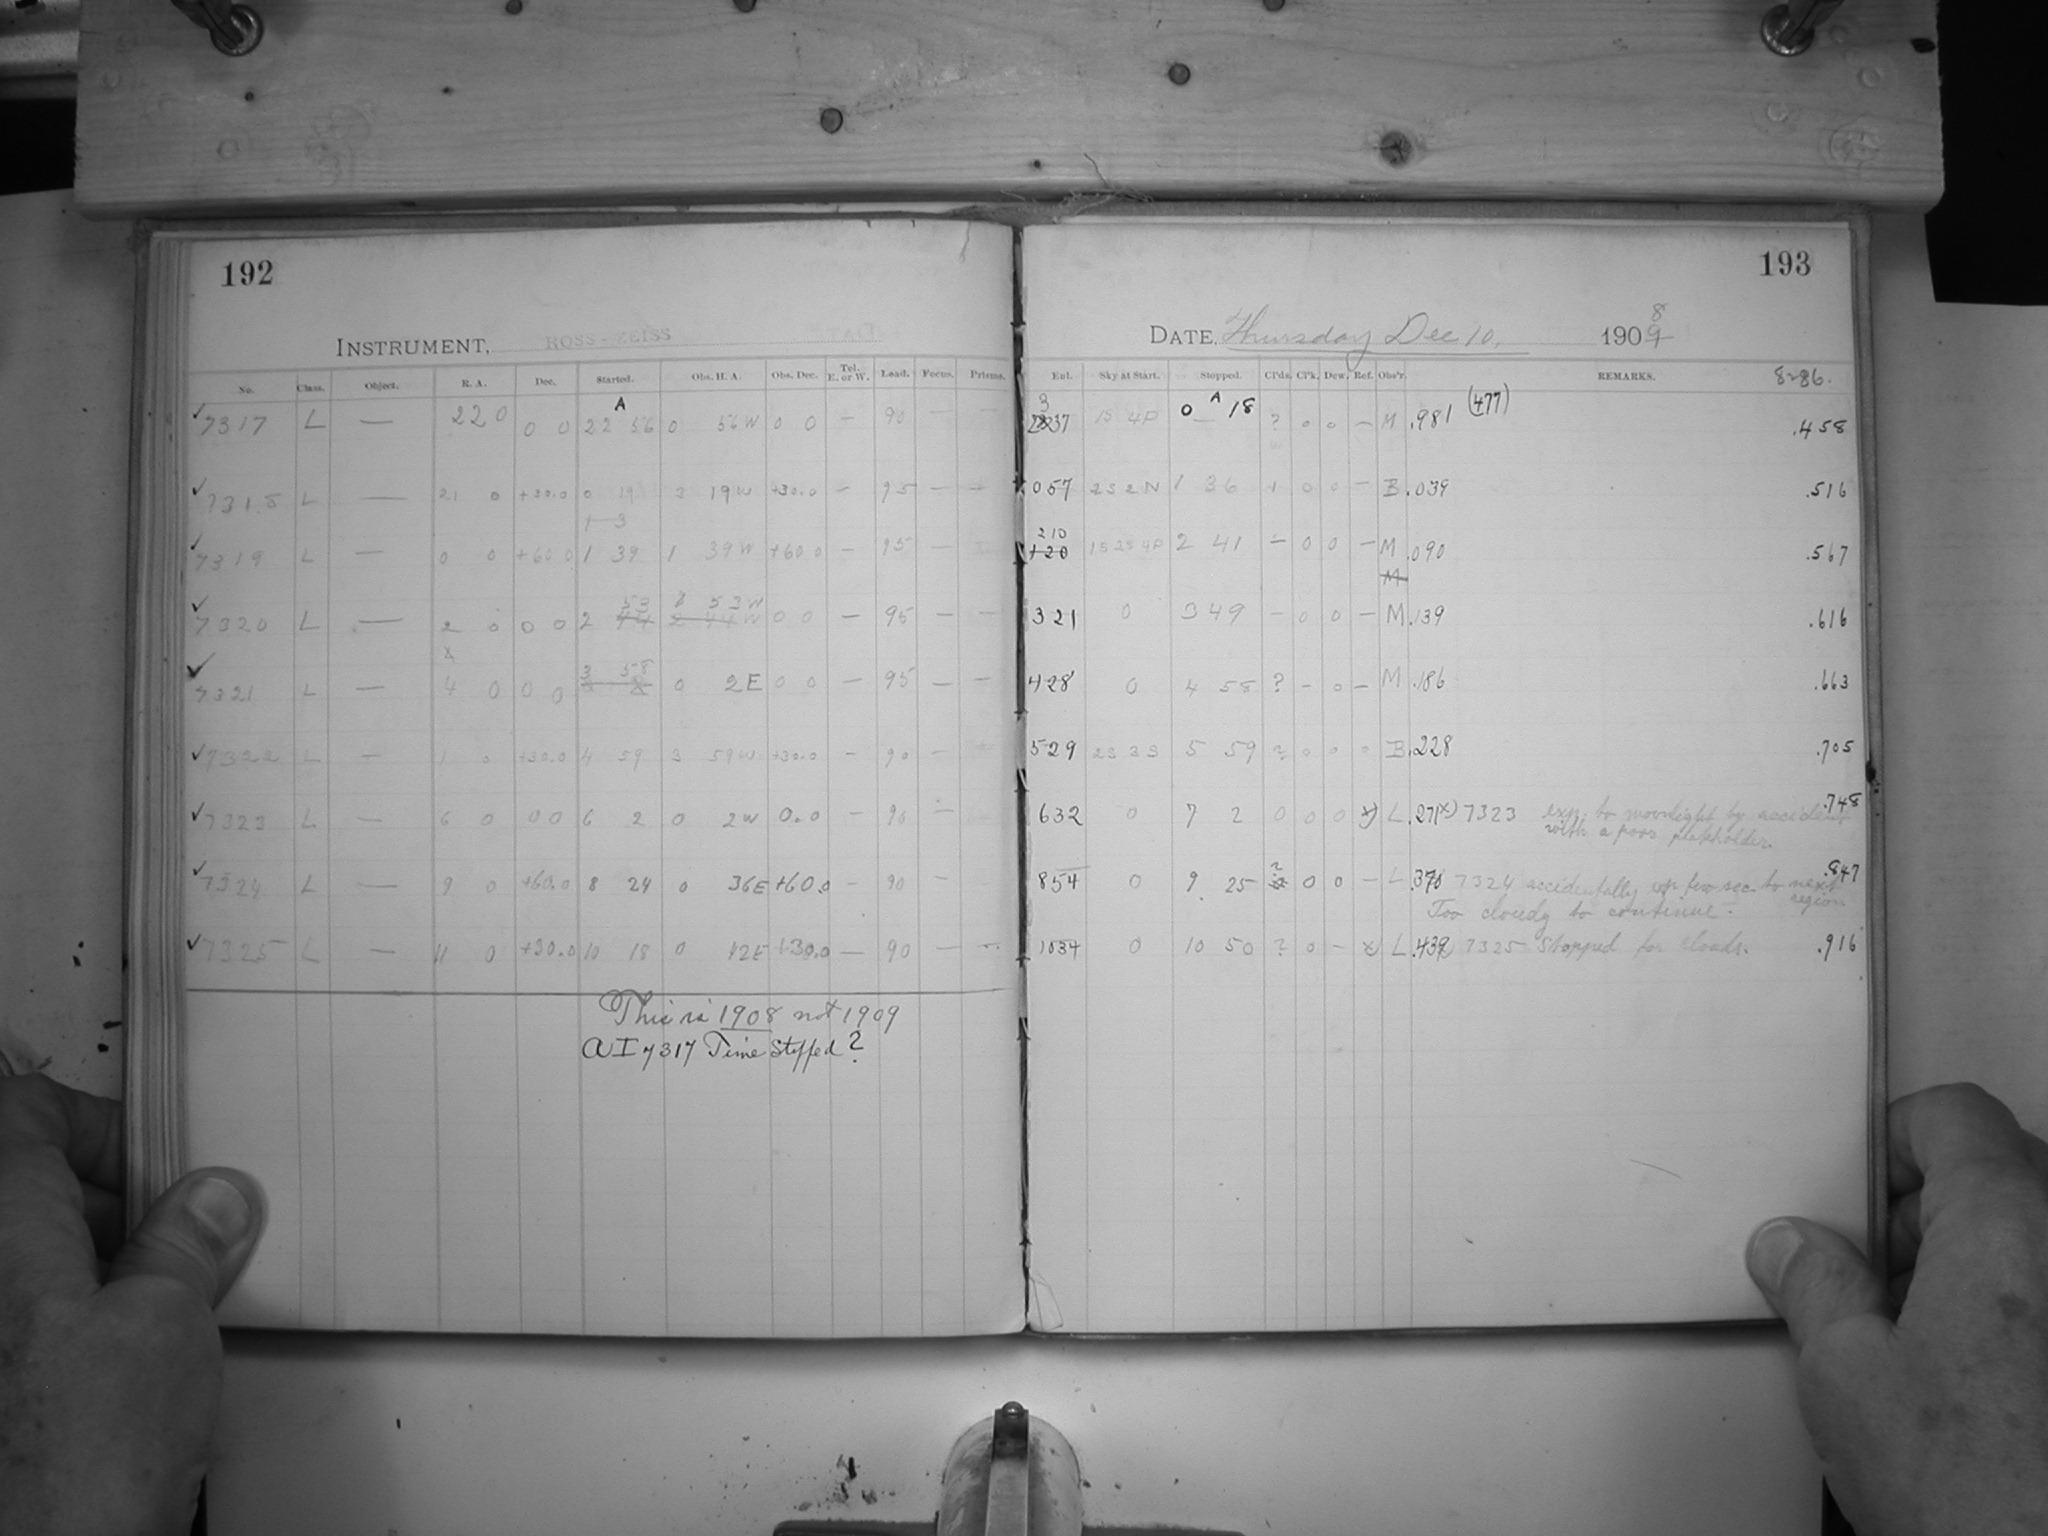 192
INSTRUMENT, ROSS-ZEISS
No. Class. Object. R. A. Dec. Started. Obs. H. A. Obs. Dec. Tel. E. or W. Load. Focus. Prisms.
✓ 7317 L — 22 0 0 0 22 56 A 0 56 W 0 0 — 90 — —
✓ 7318 L — 21 0 +30.0 0 19 3 19 W +30.0 — 95 — —
1 3
✓ 7319 L — 0 0 +60 0 1 39 1 39 W +60 0 — 95 — —
✓ 7320 L — 2 0 0 0 2 53 53 W 0 0 — 95 — —
✓ 7321 L — 4 0 0 0 3 58 0 2 E 0 0 — 95 — —
✓ 7322 L — 1 0 +30.0 4 59 3 59 W +30.0 — 90 —
✓ 7323 L — 6 0 0 0 6 2 0 2 W 0.0 — 90 —
✓ 7324 L — 9 0 +60.0 8 24 0 36 E +60.0 — 90 —
✓ 7325 L — 11 0 +30.0 10 18 0 42 E +30.0 — 90 — —
This is 1908 not 1909
AI 7317 Time Stopped?
193
DATE, Thursday Dec 10, 1909 8
Eul. Sky at Start. Stopped. Cl'ds. Cl'k. Dew. Ref. Obs'r. REMARKS. 8286.
2337 15 4P 0 A 18 ? 0 0 — M .981 (477) .458
057 23 2 N 1 36 1 0 0 — B .039 .516
210
120 15 25 4P 2 41 — 0 0 — M .090 .567
M
321 0 3 49 — 0 0 — M .139 .616
428 0 4 58 ? — 0 — M .186 .663
529 23 33 5 59 ? 0 0 0 B .228 .705
632 0 7 2 0 0 0 x) L .271 x) 7323 exp. to moonlight by accident .748
with a poor plateholder.
854 0 9 25 ? 0 0 — L .370 7324 accidentally up few sec. to next .847
region
Too cloudy to continue.
1034 0 10 50 ? 0 — x L .439 7325 Stopped for clouds. .916